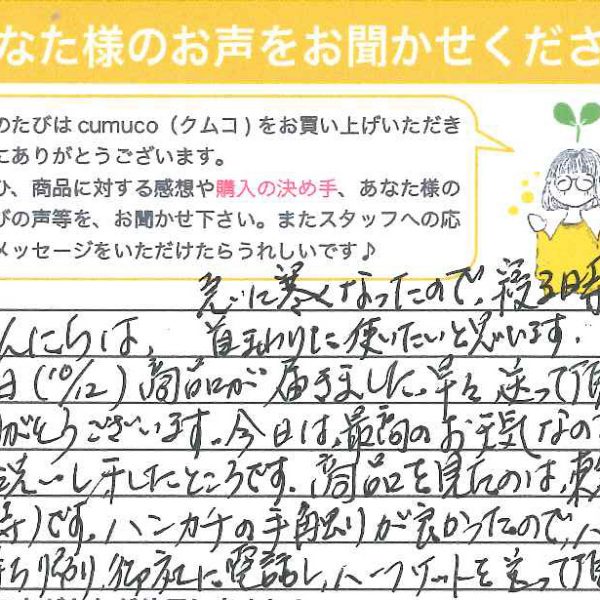 なた様のお声をお聞かせくださ
のたびは cumuco（クムコ）をお買い上げいただき
にありがとうございます。
ひ、商品に対する感想や購入の決め手、あなた様の
びの声等を、お聞かせ下さい。またスタッフへの応
メッセージをいただけたらうれしいです♪
急に寒くなったので、寝る時
んにちは、首まわりに使いたいと思います。
日(10/12)商品が届きました。早々送って頂
がとうございます。今日は最高のお天気なの
洗いし干したところです。商品を見たのは、東
)です。ハンカチの手触りが良かったので、ハ
ち帰り、御社に電話し、ハーフケットを送って頂